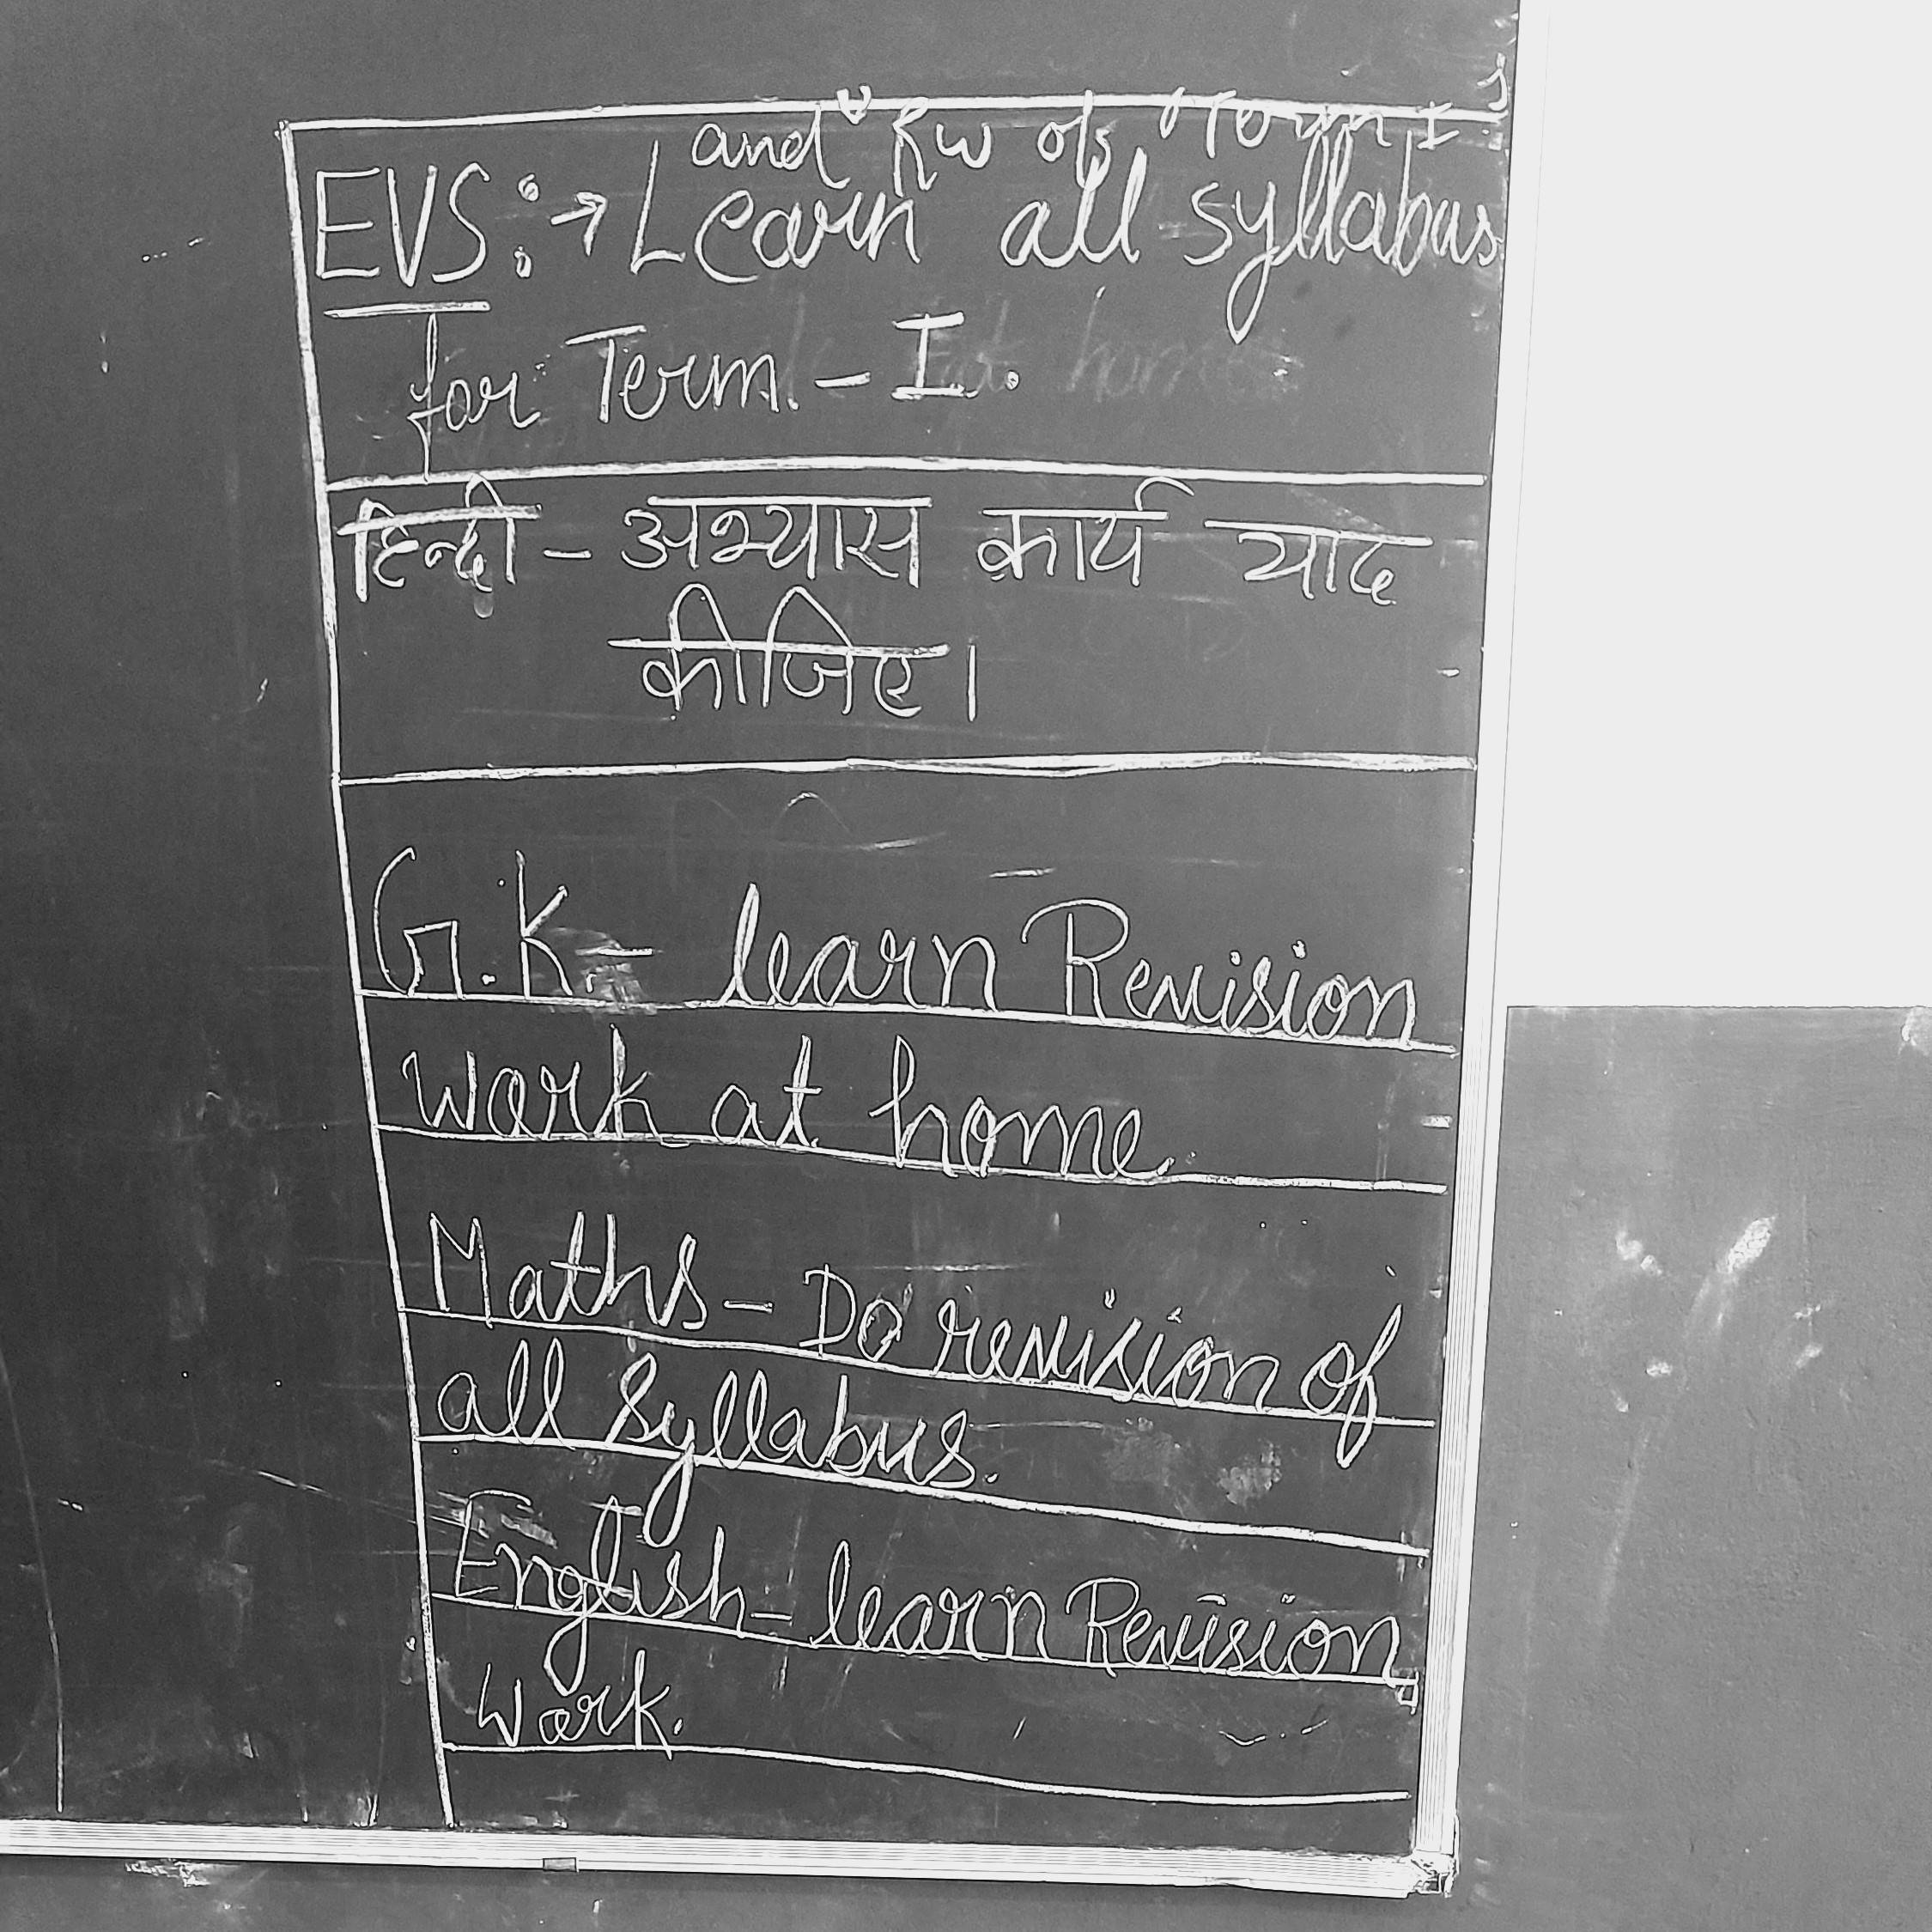 and RW of Term I
EVS:→ Learn all syllabus
for Term. - I.
हिन्दी - अभ्यास कार्य याद
कीजिए।
G.K.- learn Revision
work at home.
Maths - Do revision of
all syllabus.
English - learn Revision
Work.